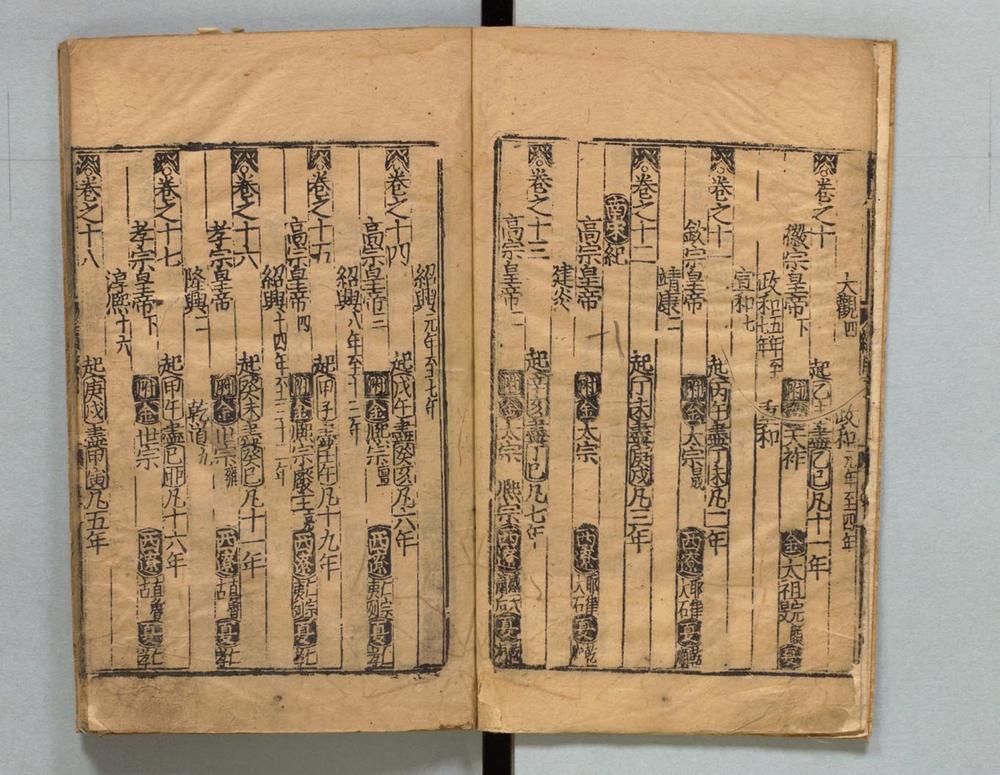 大觀四 政和元年至四年
卷之十 起乙未盡乙巳凡十一年
徽宗皇帝下 附 天祚 金 太祖 夏
政和五年至七年 重和
宣和七
卷之十一 起丙午盡丁未凡二年
欽宗皇帝 附金 太宗晟 西遼 耶律大石 夏 乾順
靖康二
卷之十二 起丁未盡庚戌凡三年
南宋紀
高宗皇帝一 附金 太宗 西遼 耶律大石 夏乾
建炎
卷之十三 起辛亥盡丁巳凡七年
高宗皇帝二 附金 太宗 熙宗 西遼 夏
紹興元年至七年
卷之十四 起戊午盡癸亥凡六年
高宗皇帝三 附金 熙宗亶 西遼 仁宗夷列 夏仁孝
紹興八年至十三年
卷之十五 起甲子盡壬午凡十九年
高宗皇帝四 附金 熙宗 廢主亮 西遼 仁宗夷列 夏仁孝
紹興十四年至三十二年
卷之十六 起癸未盡癸巳凡十一年
孝宗皇帝 附金 世宗雍 西遼 直魯古 夏仁孝
隆興二 乾道九
卷之十七 起甲午盡己酉凡十六年
孝宗皇帝下 附金 世宗 西遼 直魯古 夏仁孝
淳熙十六
卷之十八 起庚戌盡甲寅凡五年